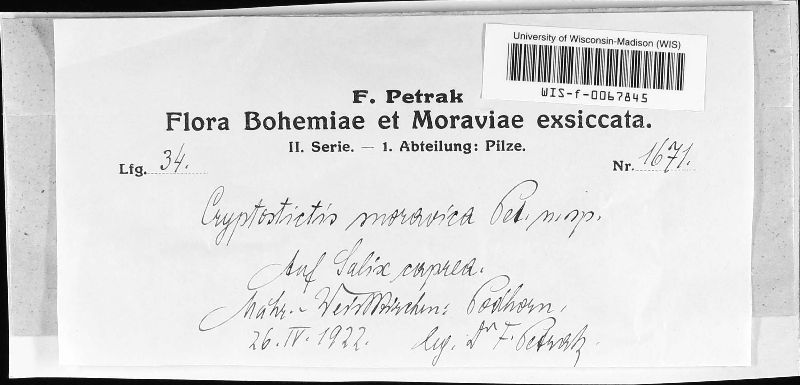 University of Wisconsin-Madison (WIS)
WIS-f-0067845
F. Petrak
Flora Bohemiae et Moraviae exsiccata.
II. Serie. — 1. Abteilung: Pilze.
Lfg. 34. Nr. 1671.
Cryptostictis moravica Pet. n. sp.
Auf Salix caprea.
Mähr.-Weisskirchen: Podhorn.
26. IV. 1922. leg. Dr F. Petrak.